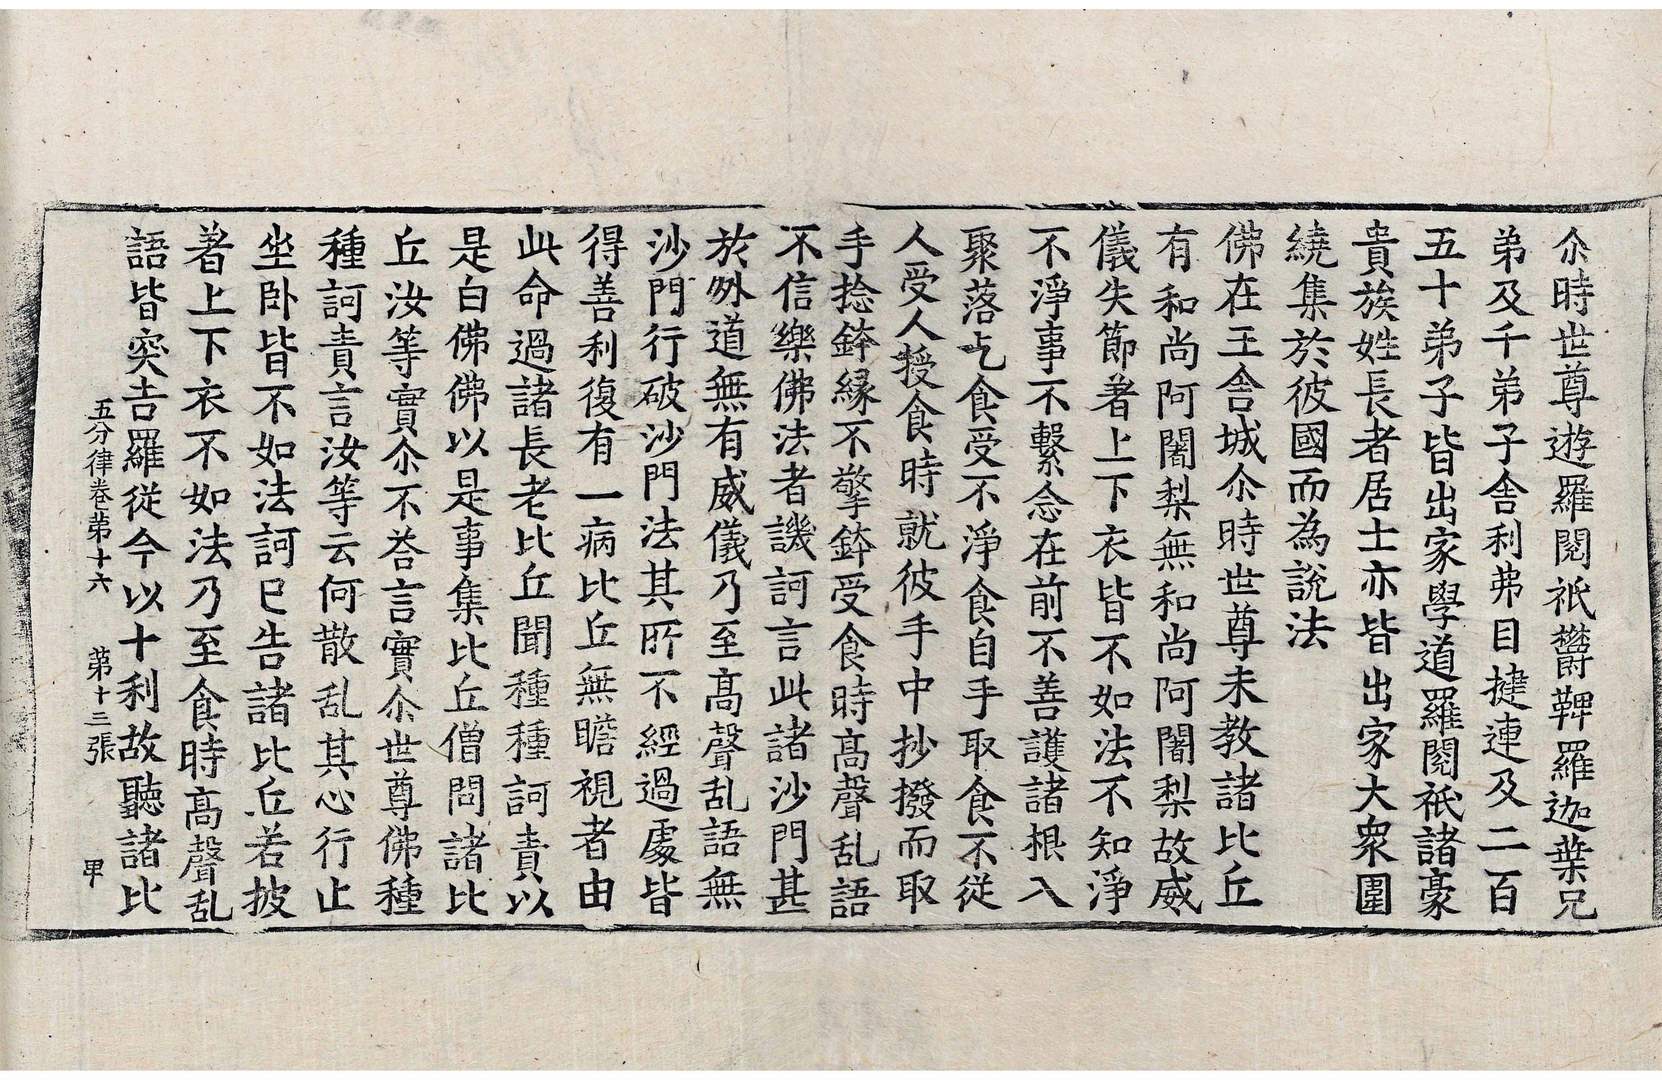 尒時世尊遊羅閱祇欝鞞羅迦葉兄
弟及千弟子舎利弗目揵連及二百
五十弟子皆出家學道羅閱祇諸豪
貴族姓長者居士亦皆出家大衆圍
繞集於彼國而為說法
佛在王舎城尒時世尊未教諸比丘
有和尚阿闍梨無和尚阿闍梨故威
儀失節著上下衣皆不如法不知淨
不淨事不繫念在前不善護諸根入
聚落乞食受不淨食自手取食不從
人受人授食時就彼手中抄撥而取
手捻鉢緣不擎鉢受食時髙聲乱語
不信樂佛法者譏訶言此諸沙門甚
於外道無有威儀乃至髙聲乱語無
沙門行破沙門法其所不經過處皆
得善利復有一病比丘無瞻視者由
此命過諸長老比丘聞種種訶責以
是白佛佛以是事集比丘僧問諸比
丘汝等實尒不荅言實尒世尊佛種
種訶責言汝等云何散乱其心行止
坐卧皆不如法訶已告諸比丘若披
著上下衣不如法乃至食時髙聲乱
語皆突吉羅從今以十利故聽諸比
五分律卷苐十六 苐十三張 甲